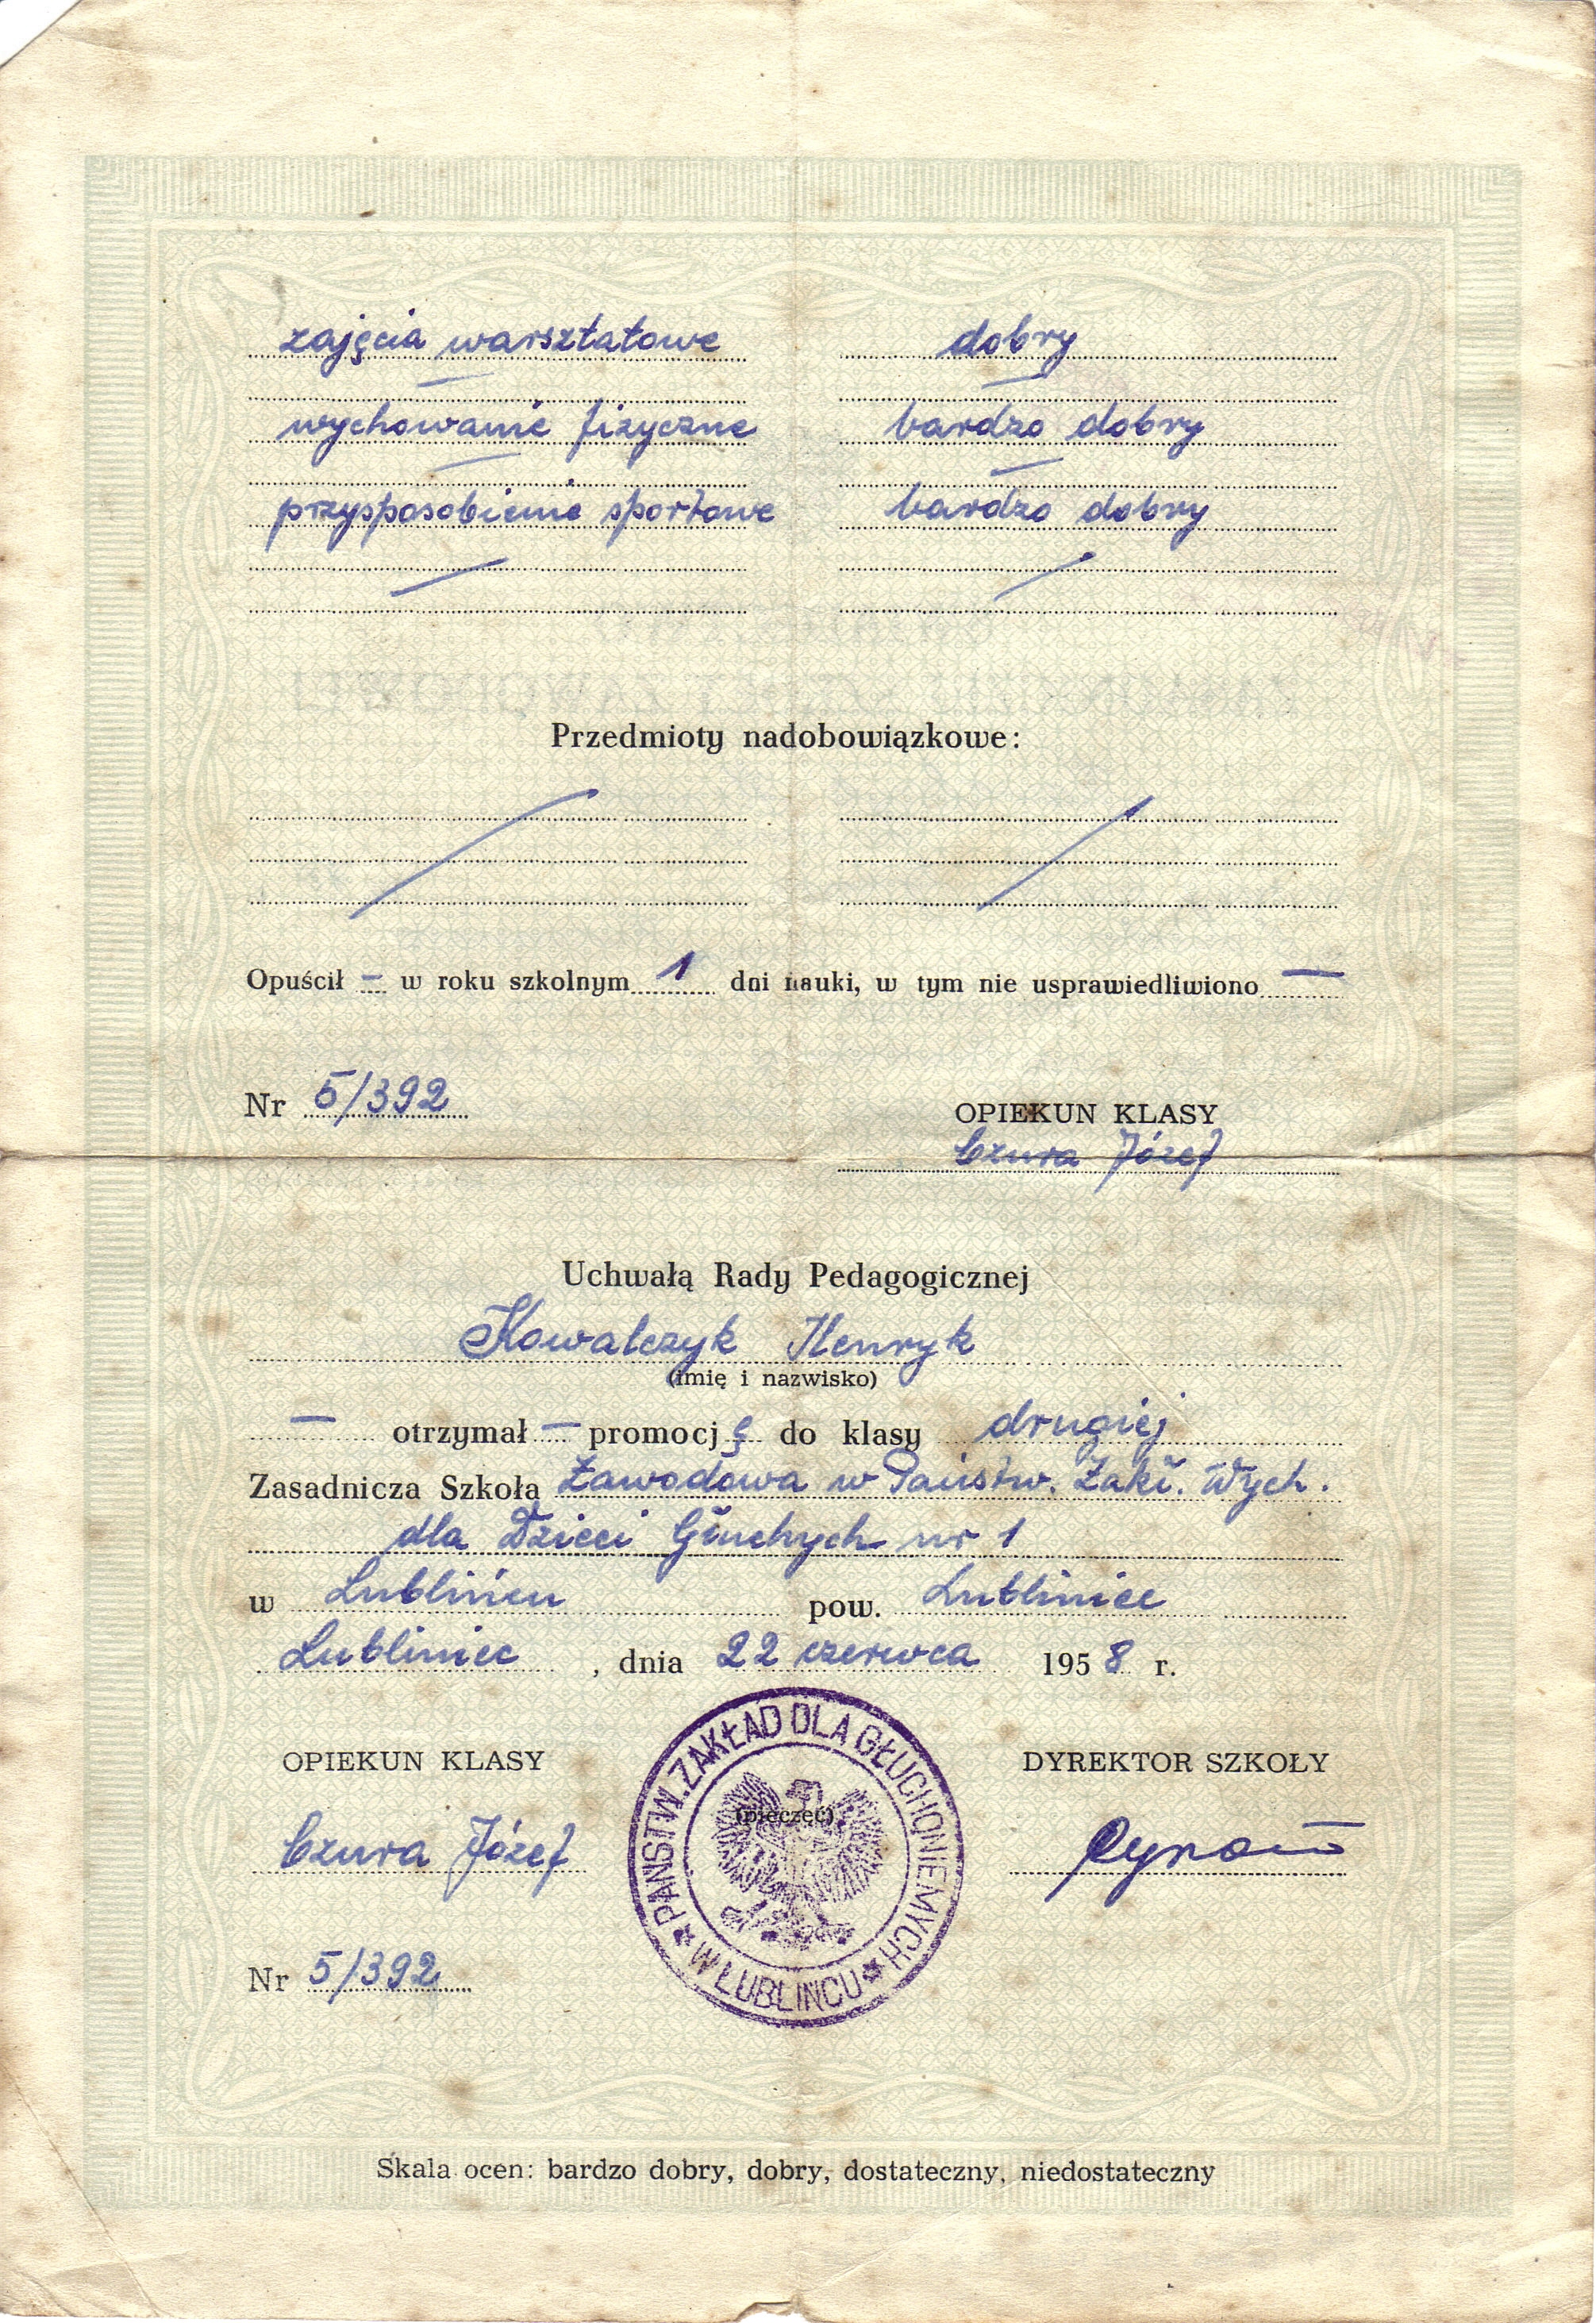 zajęcia warsztatowe dobry
wychowanie fizyczne bardzo dobry
przysposobienie sportowe bardzo dobry
Przedmioty nadobowiązkowe:
Opuścił — w roku szkolnym 1 dni nauki, w tym nie usprawiedliwiono —
Nr 5/392
OPIEKUN KLASY
Czura Józef
Uchwałą Rady Pedagogicznej
Kowalczyk Henryk
(imię i nazwisko)
— otrzymał — promocję do klasy drugiej
Zasadnicza Szkoła Zawodowa w Państw. Zakł. Wych.
dla Dzieci Głuchych nr 1
w Lublińcu pow. Lubliniec
Lubliniec, dnia 22 czerwca 1958 r.
OPIEKUN KLASY DYREKTOR SZKOŁY
(pieczęć)
Czura Józef
PAŃSTW. ZAKŁAD DLA GŁUCHONIEMYCH
W LUBLIŃCU
Nr 5/392
Skala ocen: bardzo dobry, dobry, dostateczny, niedostateczny